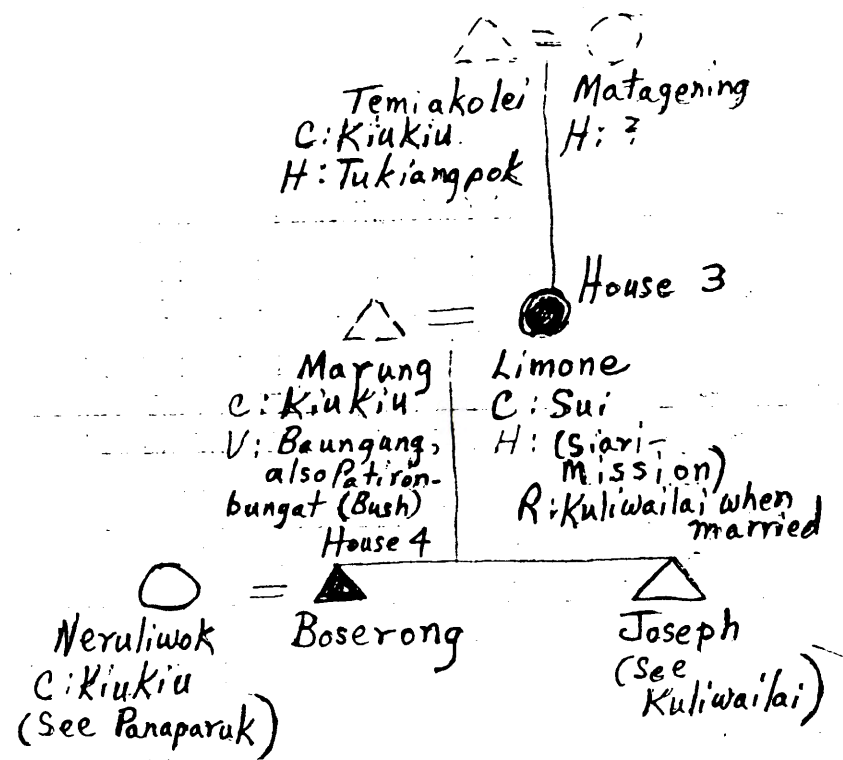 Temiakolei
C: Kiukiu
H: Tukiangpok
Matagening
H: ?
House 3
Marung
C: Kiukiu
V: Baungung,
also Patiron-
bungat (Bush)
House 4
Limone
C: Sui
H: (Siari-
mission)
R: Kuliwailai when
married
Neruliwok
C: Kiukiu
(See Panaparuk)
Boserong
Joseph
(See
Kuliwailai)